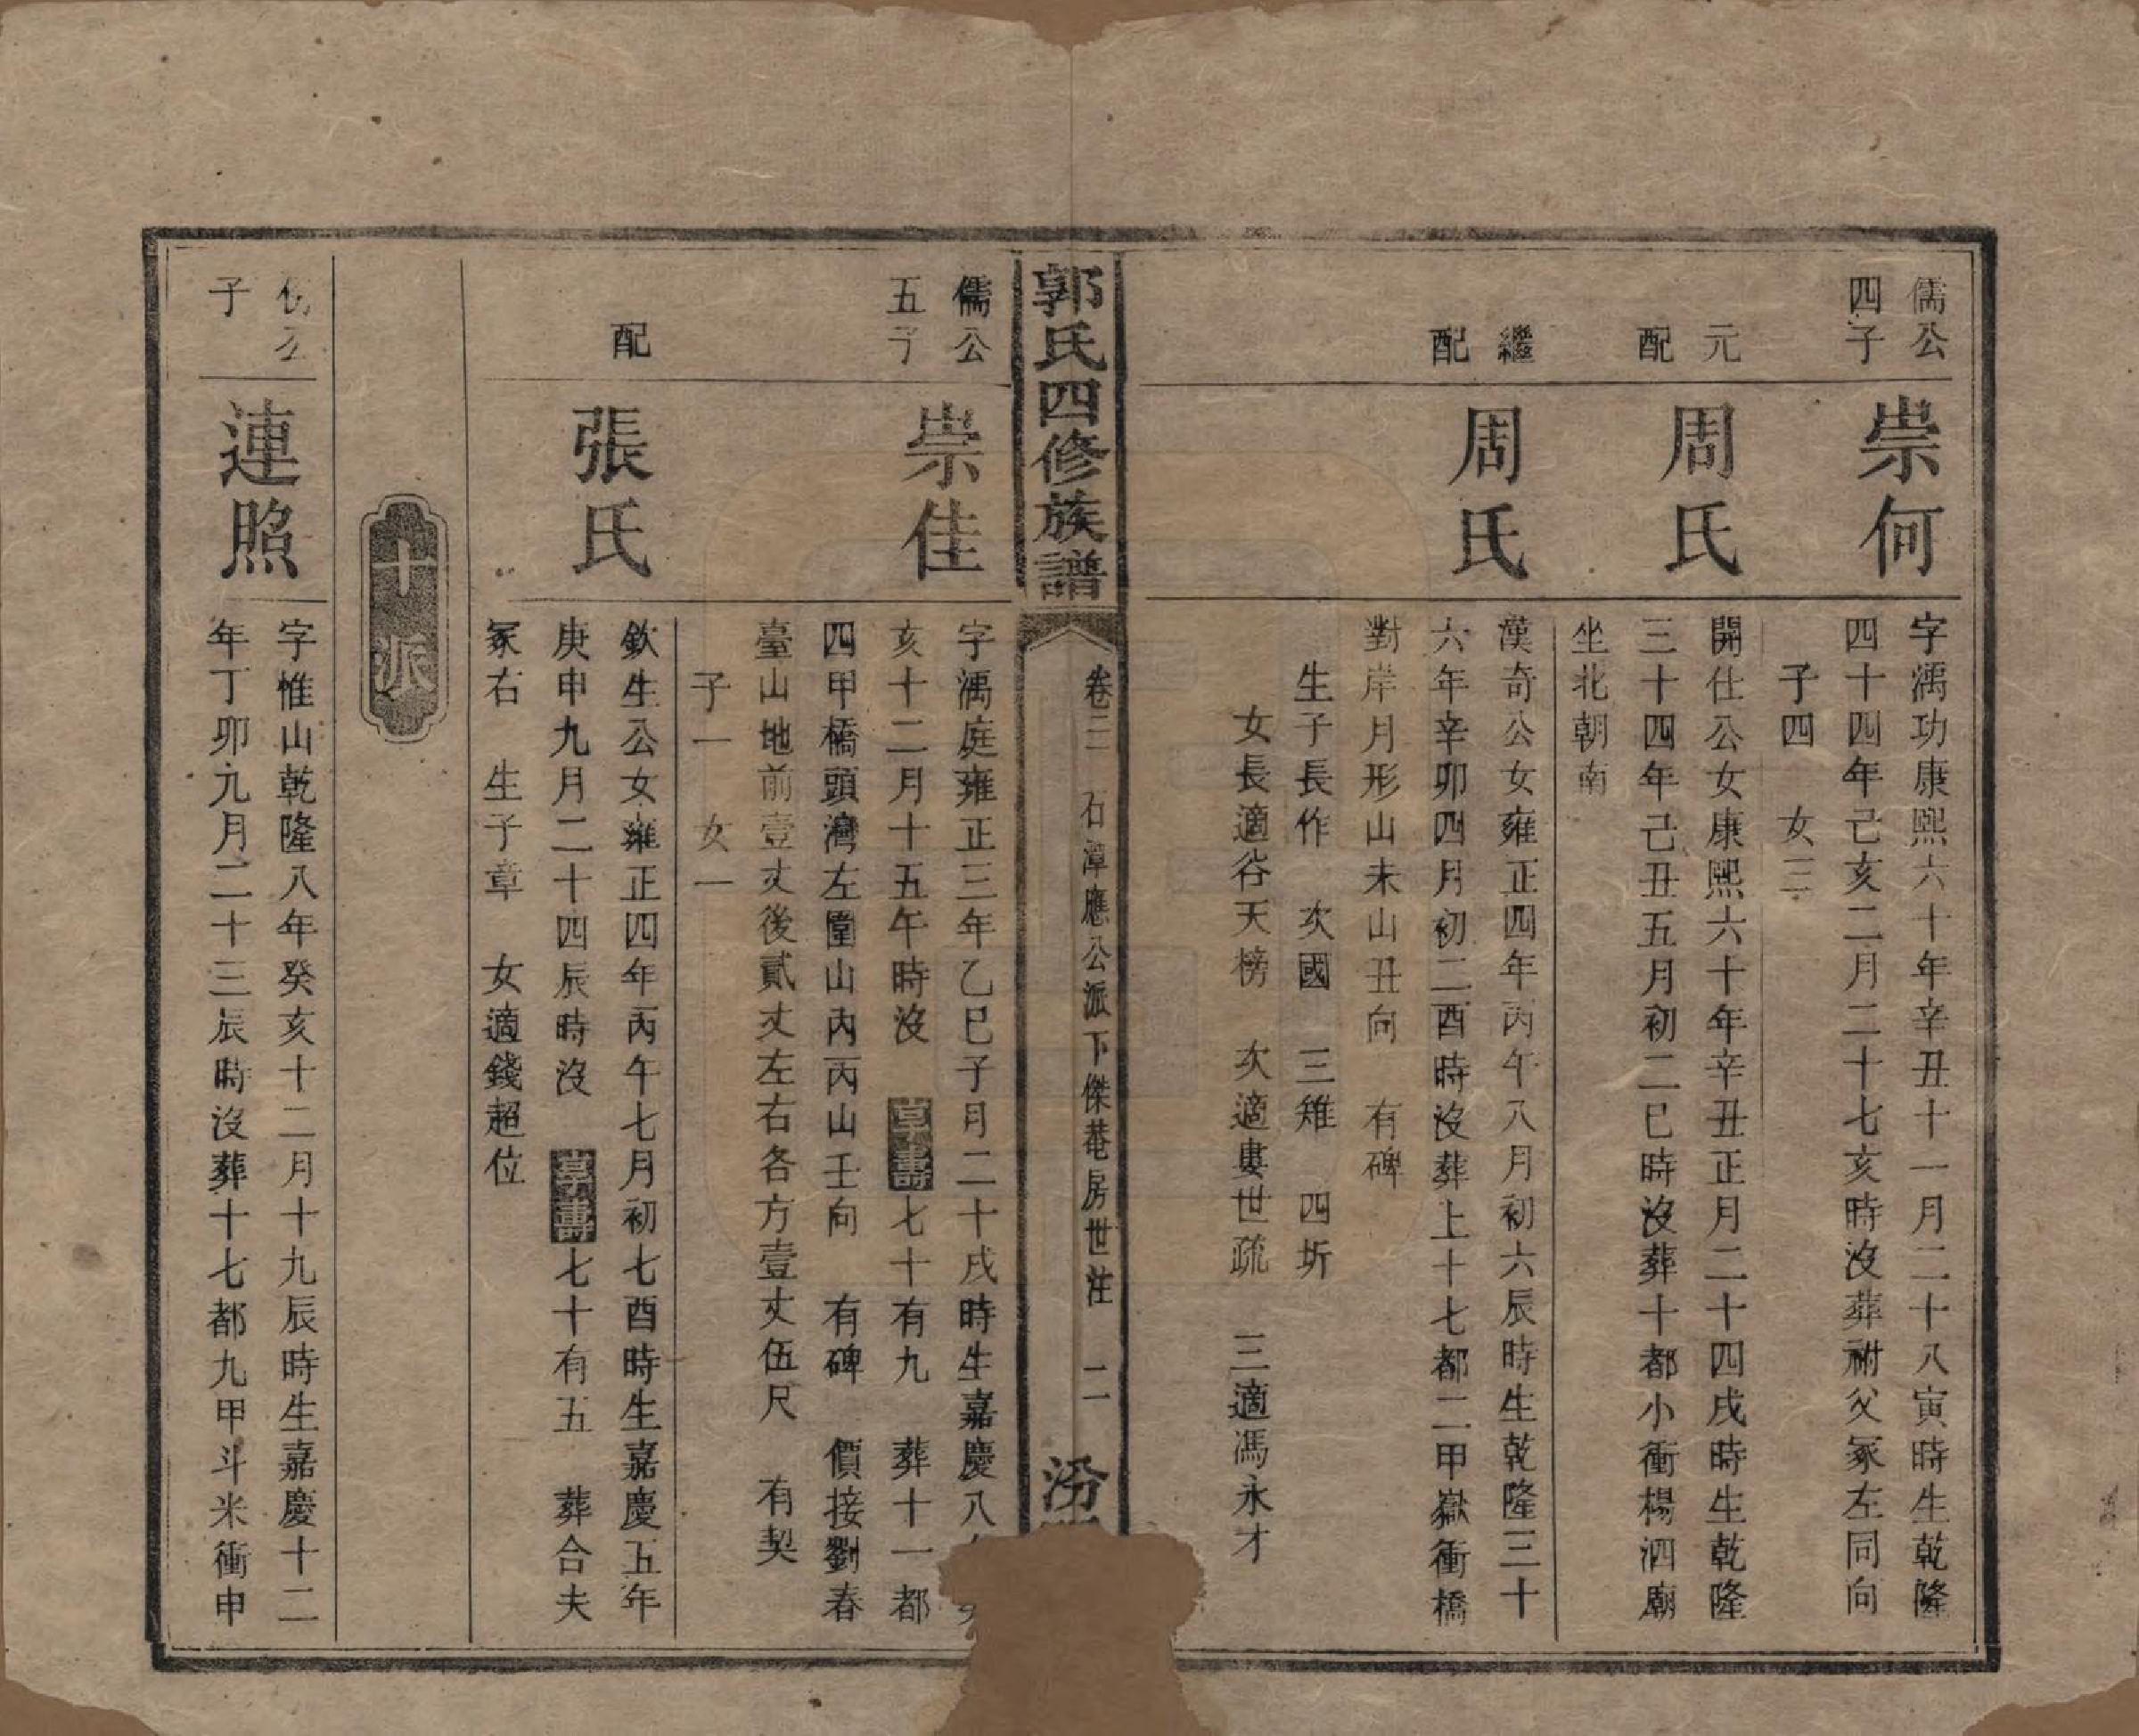 儒公
四子
崇何
字渪功康熙六十年辛丑十一月二十八寅時生乾隆
四十四年己亥二月二十七亥時沒葬祔父冢左同向
子四　女三
元
配
周氏
開仕公女康熙六十年辛丑正月二十四戌時生乾隆
三十四年己丑五月初二巳時沒葬十都小衝楊泗廟
坐北朝南
繼
配
周氏
漢奇公女雍正四年丙午八月初六辰時生乾隆三十
六年辛卯四月初二酉時沒葬上十七都二甲嶽衝橋
對岸月形山未山丑向　有碑
生子長作　次國　三雉　四圻
女長適谷天榜　次適婁世疏　三適馮永才
郭氏四修族譜
卷三　石潭應公派下傑菴房世注　二
汾
儒公
五子
崇佳
字渪庭雍正三年乙巳子月二十戌時生嘉慶八
亥十二月十五午時沒　享壽七十有九　葬十一都
四甲橋頭灣左圍山內丙山壬向　有碑　價接劉春
臺山地前壹丈後貳丈左右各方壹丈伍尺　有契
子一　女一
配
張氏
欽生公女雍正四年丙午七月初七酉時生嘉慶五年
庚申九月二十四辰時沒　享壽七十有五　葬合夫
冢右　生子章　女適錢超位
十派
公
子
連照
字惟山乾隆八年癸亥十二月十九辰時生嘉慶十二
年丁卯九月二十三辰時沒葬十七都九甲斗米衝申